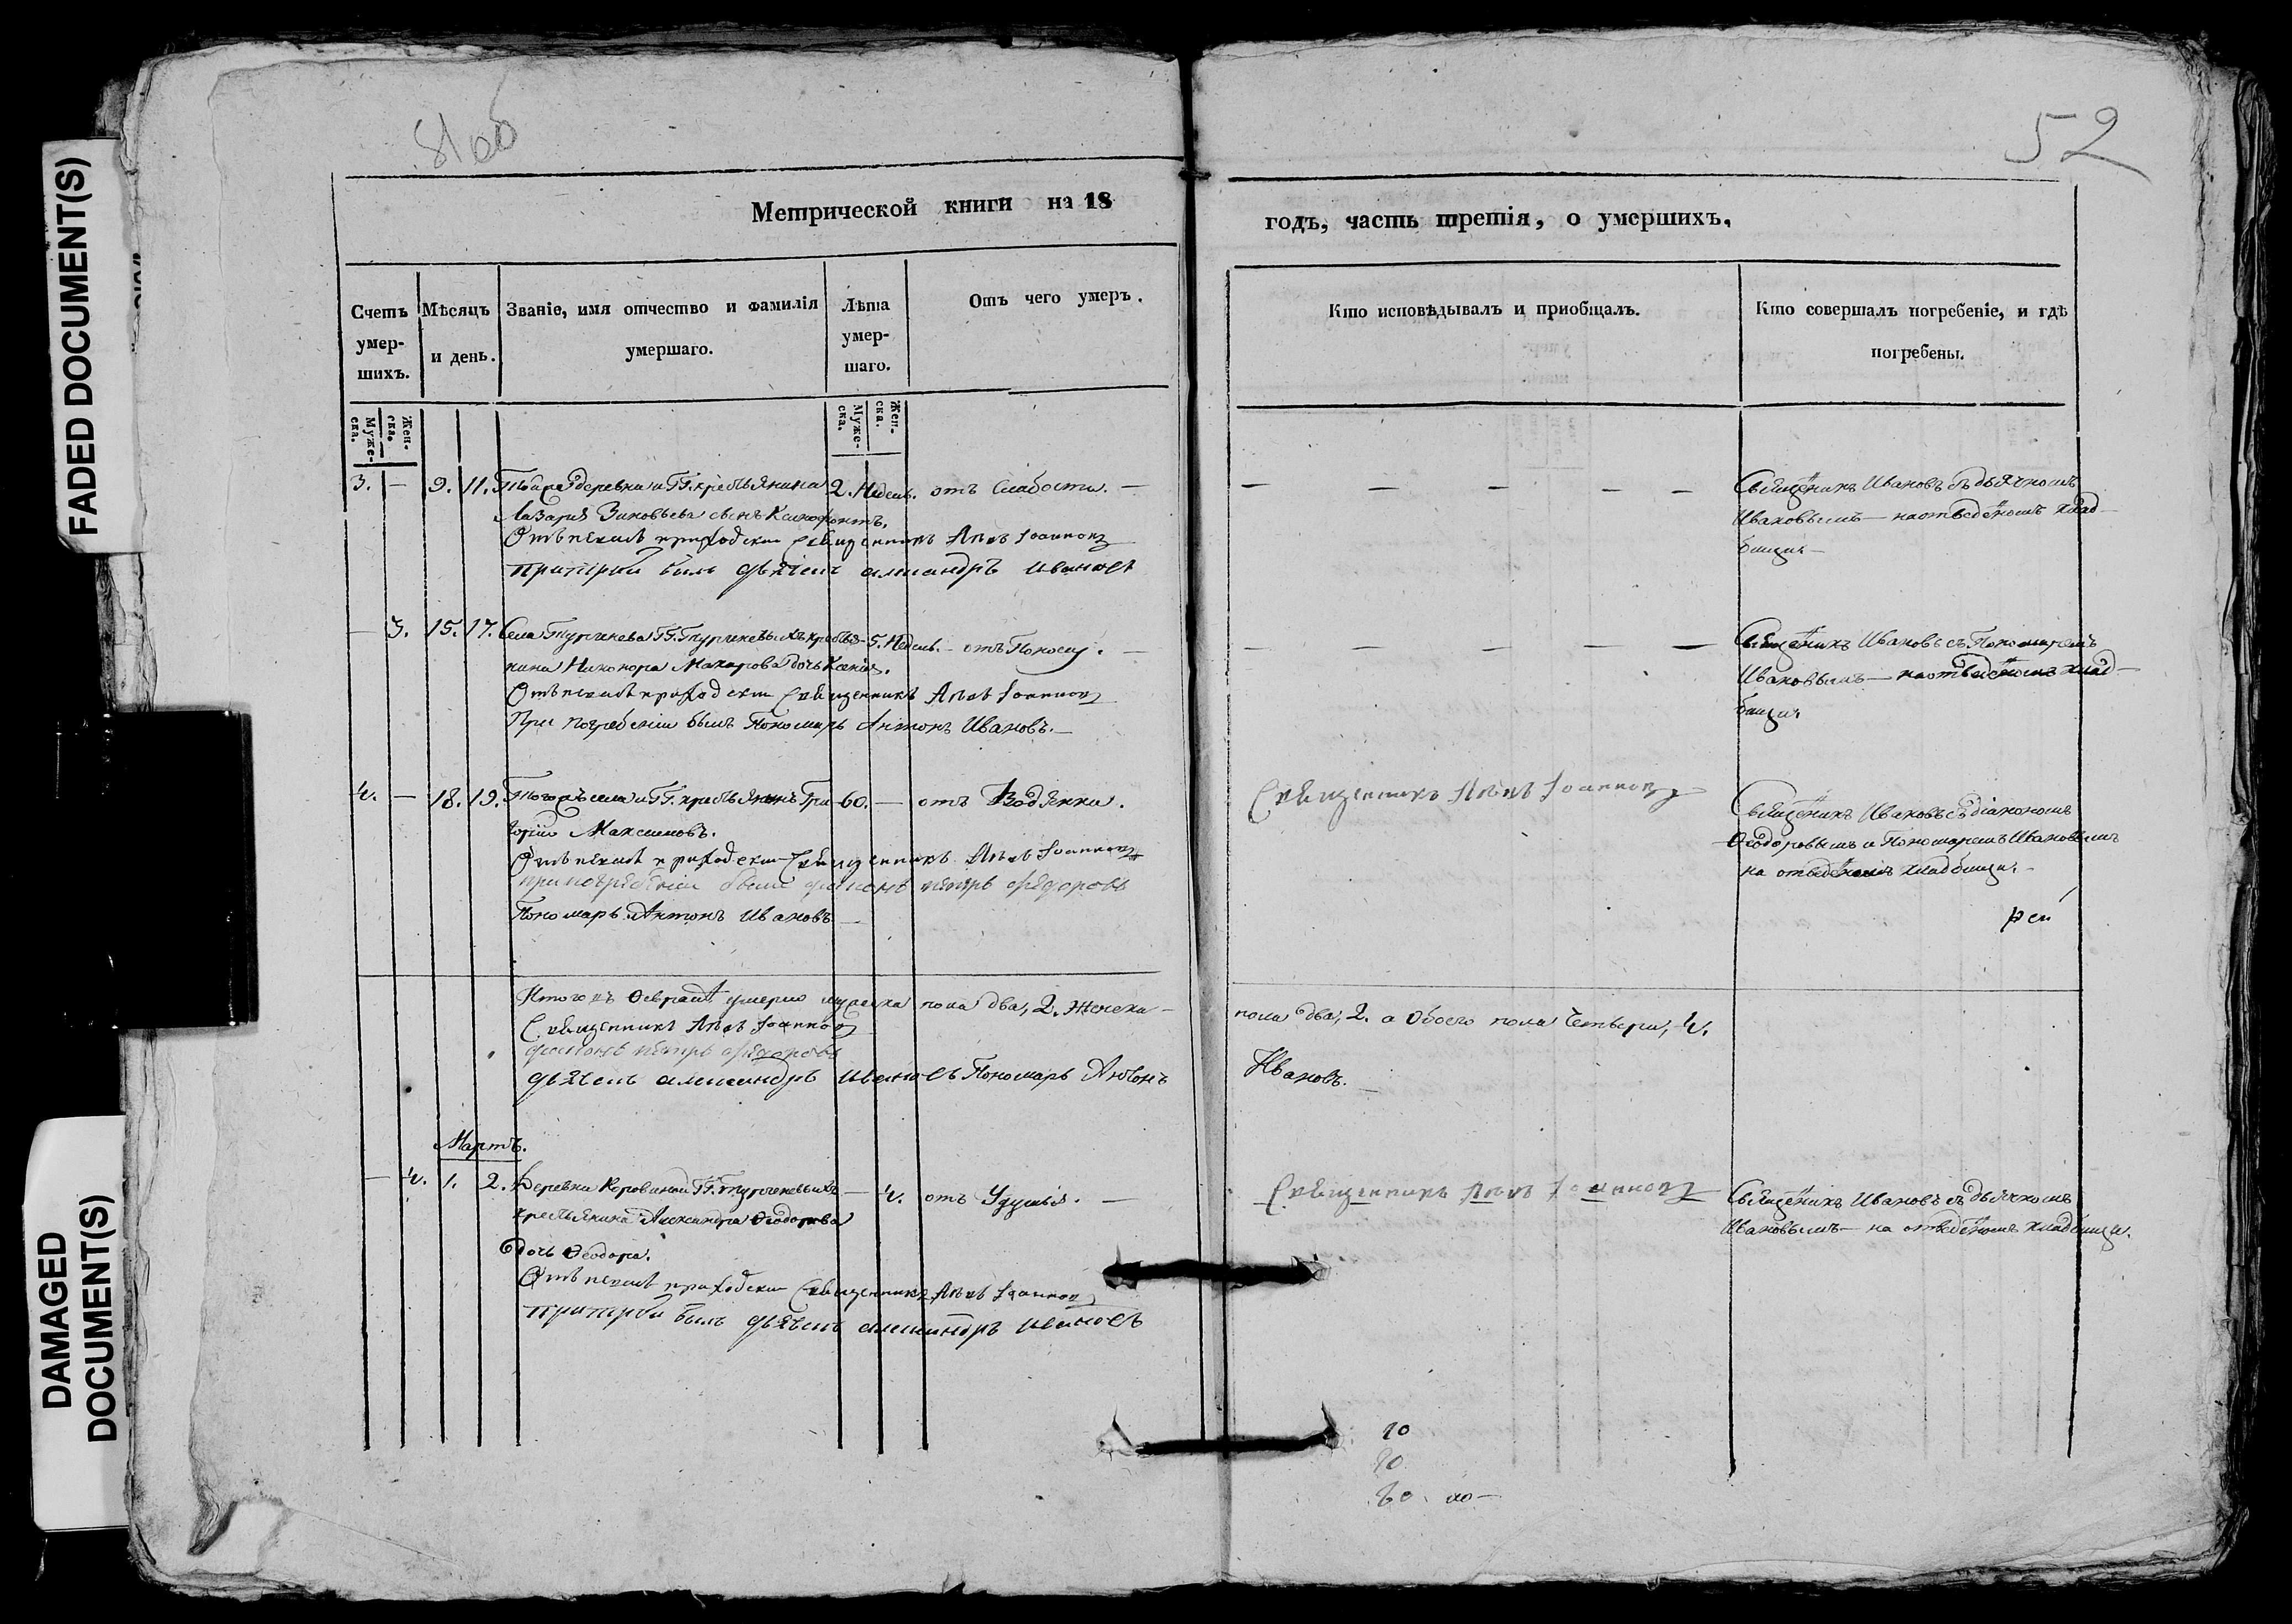 FADED DOCUMENT(S)
DAMAGED
DOCUMENT(S)
52
Метрической книги на 18
годъ, часть третія, о умершихъ.
Счетъ умер-шихъ.
Мѣсяцъ и день.
Званіе, имя отчество и фамилія умершаго.
Лѣта умер-шаго.
Отъ чего умеръ.
Кто исповѣдывалъ и приобщалъ.
Кто совершалъ погребеніе, и гдѣ погребены.
Муже-ска.
Жен-ска.
Муже-ска.
Жен-ска.
3. — 9. 11. деревни и ГГ. крестьянина 2. Недель. отъ Слабости. —
Лазаря Зиновьева сынъ Ксенофонтъ.
Отпѣвалъ приходскій Священникъ Іоанновъ
при погреб былъ дьячекъ Александръ Ивановъ
— — — — —
Священникъ Ивановъ съ дьячкомъ
Ивановымъ — на отведеномъ клад-
бищи —
— 3. 15. 17. Села Тургенева ГГ. Тургеневыхъ крестья- 5. Недель. — отъ Поносу. —
нина Никонора Макарова дочь Ксенія.
Отпѣвалъ приходскій Священникъ Іоанновъ
При погребеніи былъ Пономарь Антонъ Ивановъ. —
— — — — —
Священникъ Ивановъ съ Пономаремъ
Ивановымъ — на отведеномъ клад-
бищи
4. — 18. 19. Тогожъ села и ГГ. крестьянинъ Гри- 60. — отъ Водянки.
горій Максимовъ.
Отпѣвалъ приходскій Священникъ Іоанновъ
при погребеніи были діаконъ Петръ Федоровъ
Пономарь Антонъ Ивановъ —
Священникъ Іоанновъ
Священникъ Ивановъ съ діакономъ
Ѳеодоровымъ и Пономаремъ Ивановымъ
на отведеномъ кладбищи. —
Итого въ Ѳевралѣ умерло мужеска пола два, 2. Женска —
пола два, 2. а Обоего пола Четыри, 4.
Священникъ Іоанновъ
діаконъ Петръ Федоровъ
дьячекъ Александръ Ивановъ Пономарь Антонъ
Ивановъ. —
Мартъ.
— 4. 1. 2. Деревни Коровиной ГГ. Тургеневыхъ — 4. отъ Удушья. —
крестьянина Александра Ѳеодорова
дочь Ѳеодора.
Отпѣвалъ приходскій Священникъ Іоанновъ
при погреб былъ дьячекъ Александръ Ивановъ
Священникъ Іоанновъ
Священникъ Ивановъ съ дьячкомъ
Ивановымъ — на отведеномъ кладбищи.